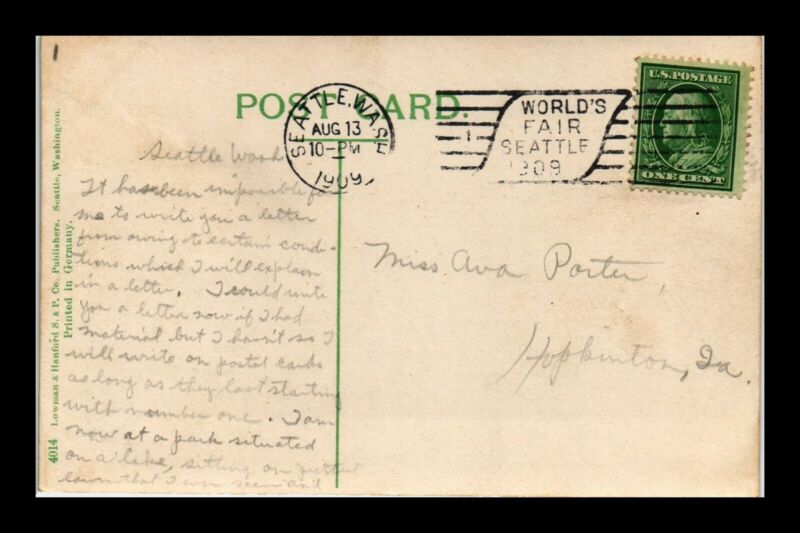 1
POST CARD.
SEATTLE, WASH
AUG 13
10-PM
1909
1
WORLD'S
FAIR
SEATTLE
1909
U.S. POSTAGE
ONE CENT
Seattle Wash
It has been impossible for
me to write you a letter
from owing to certain condi-
tions which I will explain
in a letter. I could write
you a letter now if I had
material but I havn't so I
will write on postal cards
as long as they last starting
with number one. I am
now at a park situated
on a lake, sitting on prettiest
lawn that I ever seen and
Miss Ava Porter,
Hopkinton, Ia.
4014 Lowman & Hanford S. & P. Co. Publishers. Seattle, Washington.
Printed in Germany.